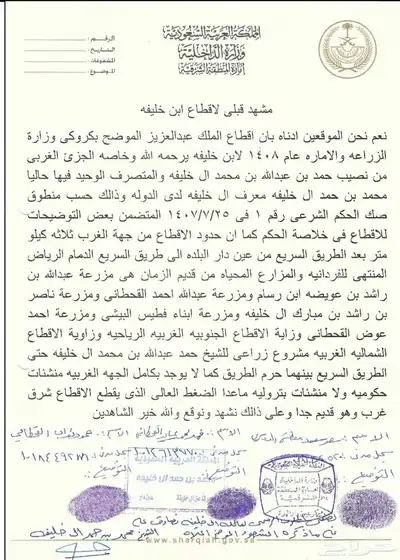 المملكة العربية السعودية
وزارة الداخلية
إمارة المنطقة الشرقية
الرقم :
التاريخ :
المشفوعات :
الموضوع :
مشهد قبلى لاقطاع ابن خليفه
نعم نحن الموقعين ادناه بان اقطاع الملك عبدالعزيز الموضح بكروكى وزارة
الزراعه والاماره عام ١٤٠٨ لابن خليفه يرحمه الله وخاصه الجزئ الغربى
من نصيب حمد بن عبدالله بن محمد ال خليفه والمتصرف الوحيد فيها حاليا
محمد بن حمد ال خليفه معرف ال خليفه لدى الدوله وذالك حسب منطوق
صك الحكم الشرعى رقم ١ فى ١٤٠٧/٧/٢٥ المتضمن بعض التوضيحات
للاقطاع فى خلاصة الحكم كما ان حدود الاقطاع من جهة الغرب ثلاثه كيلو
متر بعد الطريق السريع من عين دار البلده الى طريق السريع الدمام الرياض
المنتهى للفردانيه والمزارع المحياه من قديم الزمان هى مزرعة عبدالله بن
راشد بن عويضه ابن رسام ومزرعة عبدالله احمد القحطانى ومزرعة ناصر
بن راشد بن مبارك ال خليفه ومزرعة ابناء فطيس البيشى ومزرعة احمد
عوض القحطانى وزاية الاقطاع الجنوبيه الغربيه الرياحيه وزاوية الاقطاع
الشماليه الغربيه مشروع زراعى للشيخ حمد عبدالله بن محمد ال خليفه حتى
الطريق السريع بينهما حرم الطريق كما لا يوجد بكامل الجهه الغربيه منشئات
حكوميه ولا منشئات بتروليه ماعدا الضغط العالى الذى يقطع الاقطاع شرق
غرب وهو قديم جدا وعلى ذالك نشهد ونوقع والله خير الشاهدين
الاسم
الاسم
الاسم
سجل مدنى
التوقيع
التوقيع
الشيخ محمد بن حمد ال خليفه
www.sharqiah.gov.sa